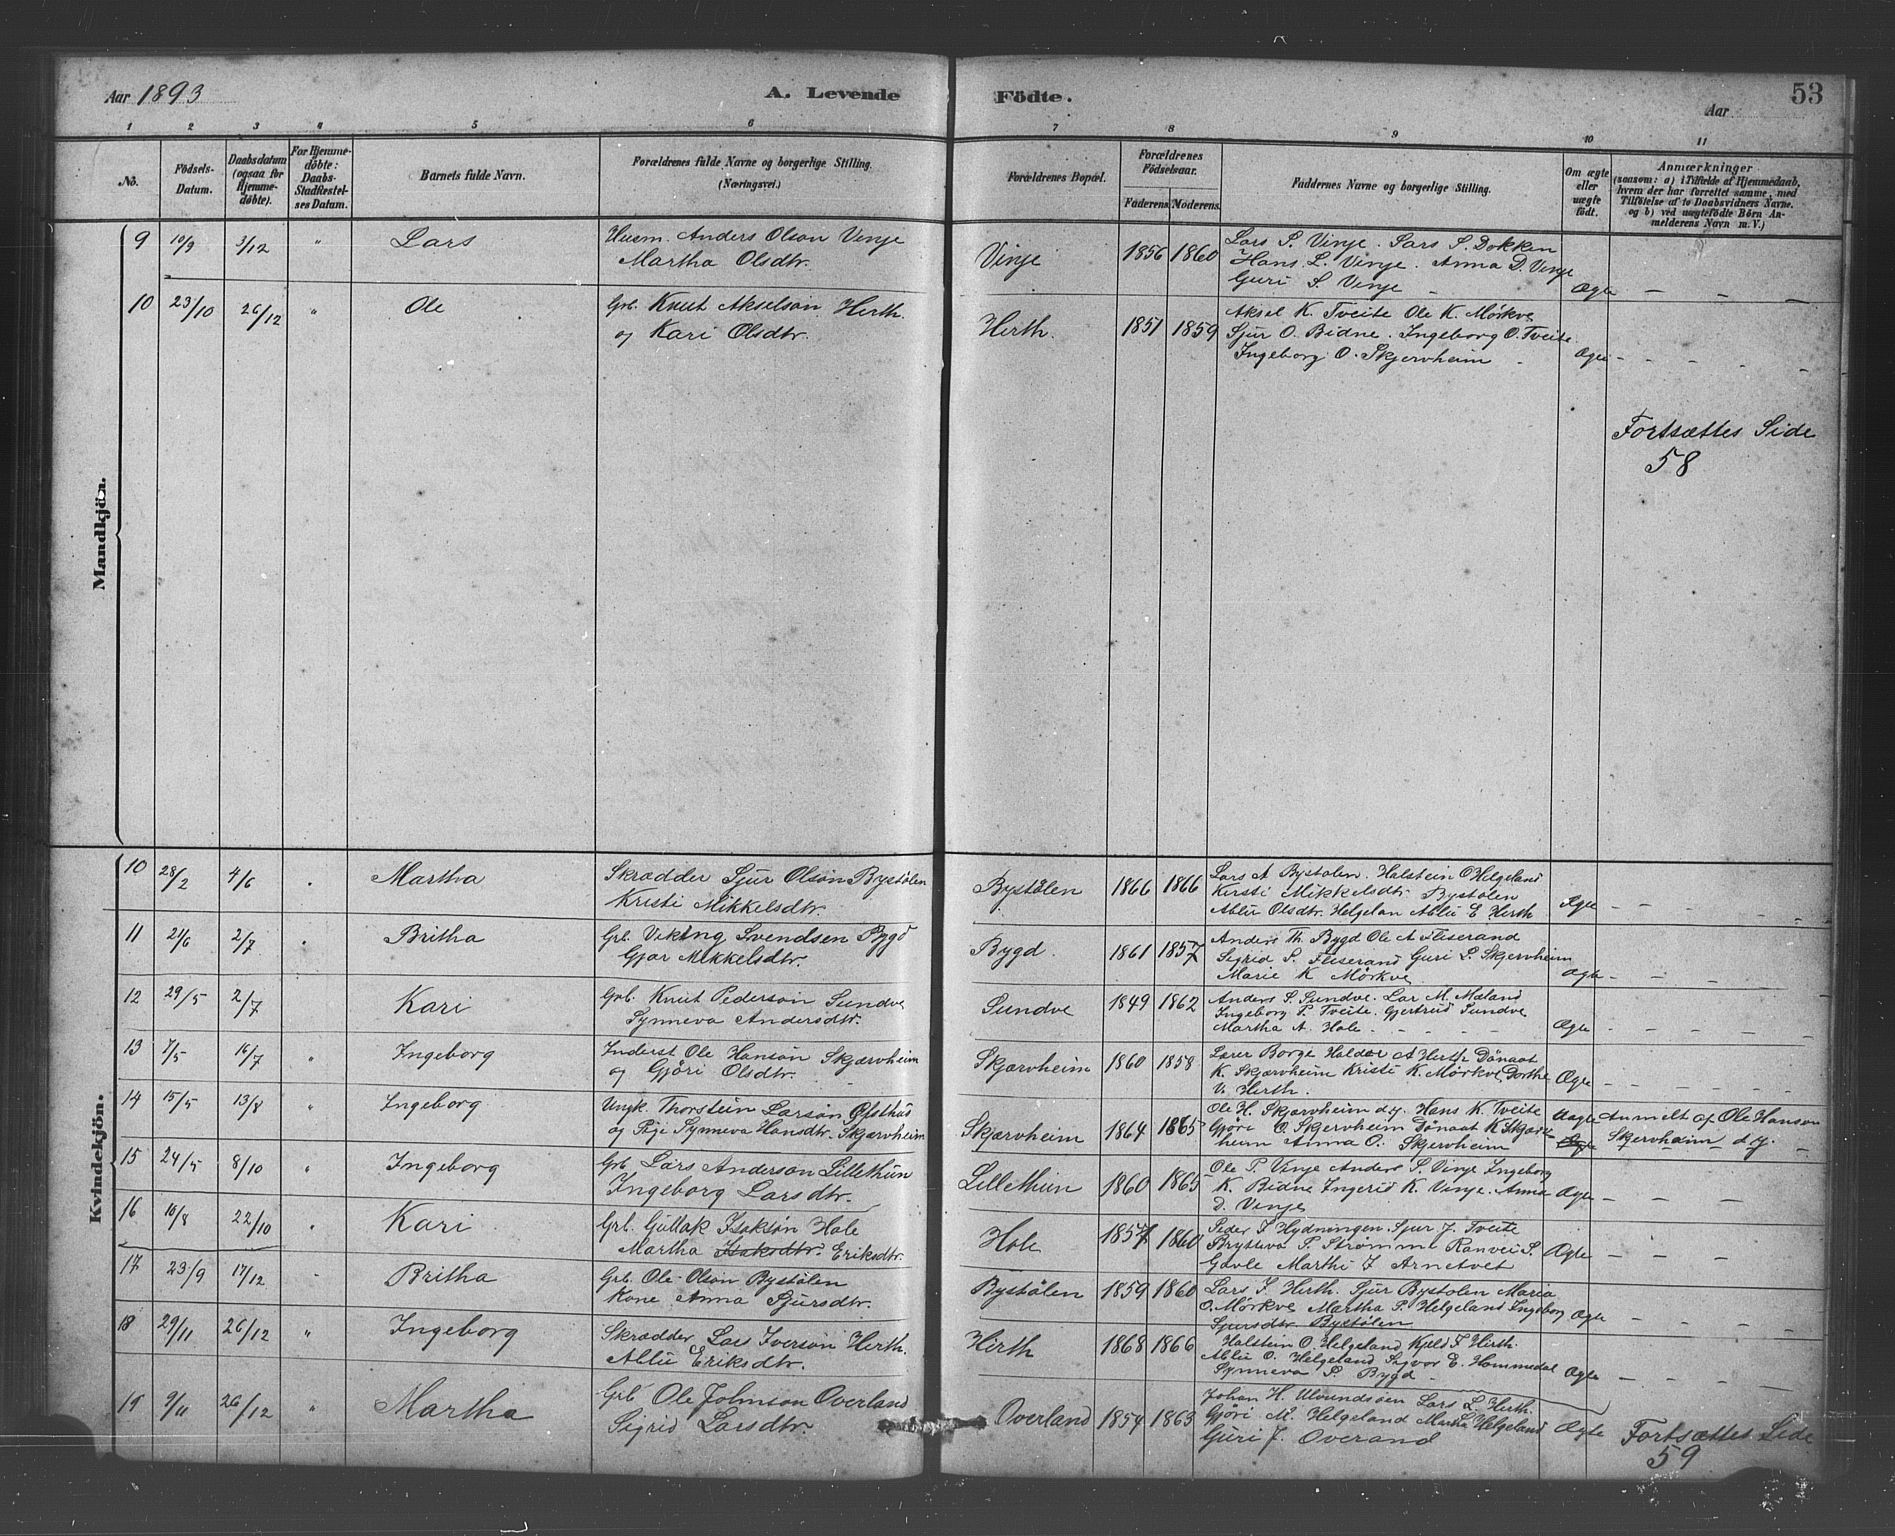 Aar 1893
A. Levende Födte.
Aar
53
1 2 3 4 5 6 7 8 9 10 11
No.
Födsels-Datum.
Daabsdatum (ogsaa for Hjemme-döbte).
For Hjemme-döbte: Daabs-Stadfæstel-ses Datum.
Barnets fulde Navn.
Forældrenes fulde Navne og borgerlige Stilling. (Næringsvei.)
Forældrenes Bopæl.
Forældrenes Födselsaar.
Faderens. Moderens.
Faddernes Navne og borgerlige Stilling.
Om ægte eller uægte födt.
Anmærkninger
(saasom: a) i Tilfælde af Hjemmedaab,
hvem der har forrettet samme, med
Tilföielse af to Daabsvidners Navne.
og b) ved uægtefödte Börn An-
melderens Navn m. V.)
Mandkjön.
9 10/9 3/12 " Lars Husm. Anders Olson Vinje
Martha Olsdtr.
Vinje 1856 1860 Lars S. Vinje. Lars S. Dokken
Hans L. Vinje. Anna D. Vinje
Guri S. Vinje Ægte
10 23/10 26/12 " Ole Grb. Knut Akselson Herth.
og Kari Olsdtr.
Herth. 1851 1859 Aksel K. Tveite Ole K. Mørkve
Sjur O. Bidne. Ingeborg O. Tveite
Ingeborg O. Skjervheim Ægte
Fortsættes Side
58
Kvindekjön.
10 28/2 4/6 " Martha Skrædder Sjur Olson Bystölen
Kristi Mikkelsdtr.
Bystölen 1866 1866 Lars A Bystölen. Halstein O Helgeland
Kersti Mikkelsdtr Bystölen
Ablu Olsdtr. Helgelan Ablu E Herth Ægte
11 21/6 2/7 " Britha Grb. Viking Svendsen Bygd
Gjør Mikkelsdtr.
Bygd. 1861 1857 Anders Th. Bygd Ole A Fliserand
Sigrid S. Fliserand Guri L Skjervheim
Marie K Mörkve Ægte
12 29/5 2/7 Kari Grb. Knut Pederson Sundve
Synneva Andersdtr.
Sundve 1849 1862 Anders S. Sundve. Lar M. Mæland
Ingeborg P. Tveite. Gjertrud Sundve
Martha A. Hole Ægte
13 7/5 16/7 " Ingeborg Inderst Ole Hanson Skjærvheim
og Gjöri Olsdtr.
Skjærvheim 1860 1858 Lærer Borge Haldor A Herth Dönaat
K. Skjærvheim Kristi K. Mörkve Dorthe
V. Herth. Ægte
14 15/5 13/8 " Ingeborg Ungk. Thorstein Larson Ølsthus
og Pige Synneva Hansdtr. Skjærvheim
Skjærvheim 1864 1865 Ole H. Skjærvheim d.y. Hans K. Tveite
Gjöri O. Skjervheim Dönaat K Skjær-
heim Anna O. Skjervheim Uægte Ægte
Anmelt af Ole Hanson
Skjervheim d.y.
15 24/5 8/10 " Ingeborg Grb Lars Anderson Lillethun
Ingeborg Larsdtr.
Lillethun 1860 1865 Ole P. Vinje Anders S. Vinje Ingeborg
K. Bidne Ingerid K. Vinje. Anna
D. Vinje Ægte
16 10/8 22/10 " Kari Grb. Gullak Isakson Hole
Martha Isaksdtr. Eriksdtr.
Hole 1857 1860 Peder S Hydningen. Sjur J. Tveite
Brytteva P. Strömme Ranvei S.
Gavle Marthe J Arnetvet Ægte
17 23/9 17/12 " Britha Grb. Ole Olson Bystölen
Kone Anna Sjursdtr.
Bystölen 1859 1860 Lars I. Herth. Sjur Bystölen Maria
O. Mörkve Martha P. Helgeland Ingeborg
Sjursdtr Bystölen Ægte
18 29/11 26/12 " Ingeborg Skrædder Lars Iverson Herth.
Ablu Eriksdtr.
Hirth 1868 1866 Halstein O. Helgeland Kjeld I. Hirth.
Ablu O. Helgeland Sigvor E. Hommedal
Synneva S. Bygd Ægte
19 9/11 26/12 " Martha Grb Ole Johnson Overland
Sigrid Larsdtr.
Overland 1854 1863 Johan H. Ulvundsoen Lars L. Herth.
Gjöri M. Helgeland Martha L Helgeland
Guri J. Overand Ægte
Fortsættes Side
59